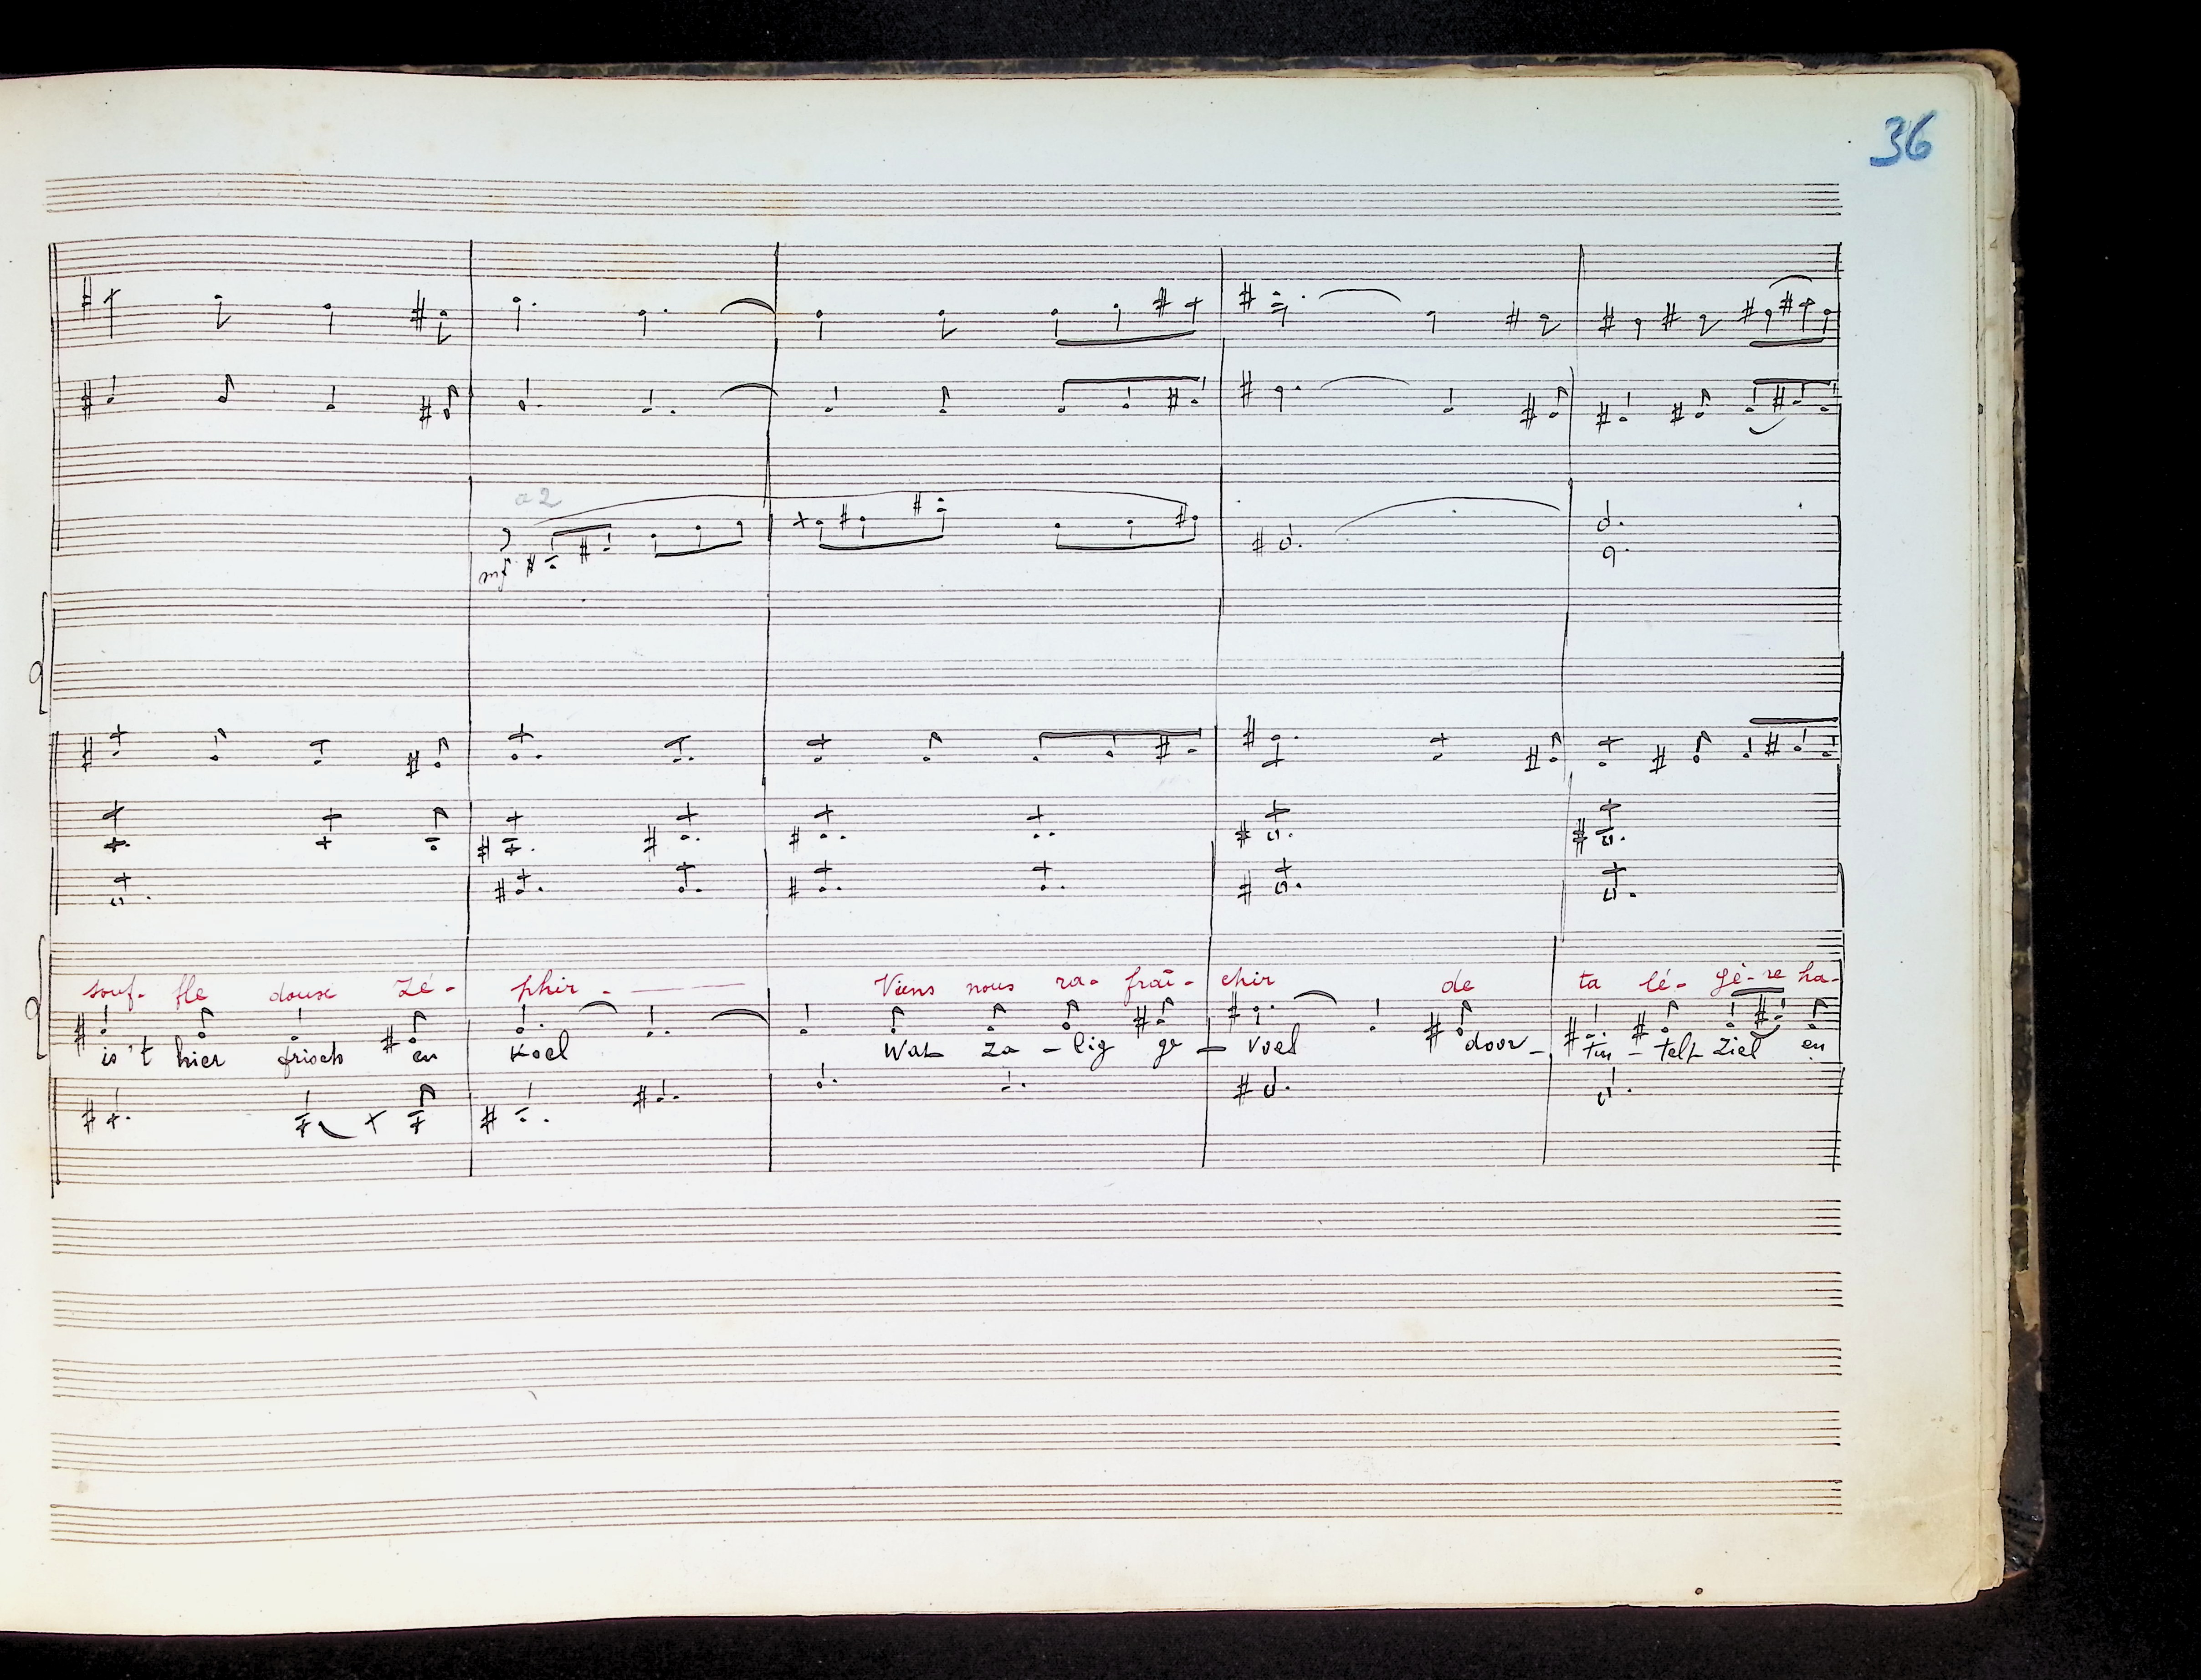 36
a 2
mf
souf- fle doux Zé- phir - Viens nous ra- fraî- chir de ta lé- gè- re ha-
is 't hier frisch en Koel Wat Za - lig ge - voel door - tin - telt Ziel en